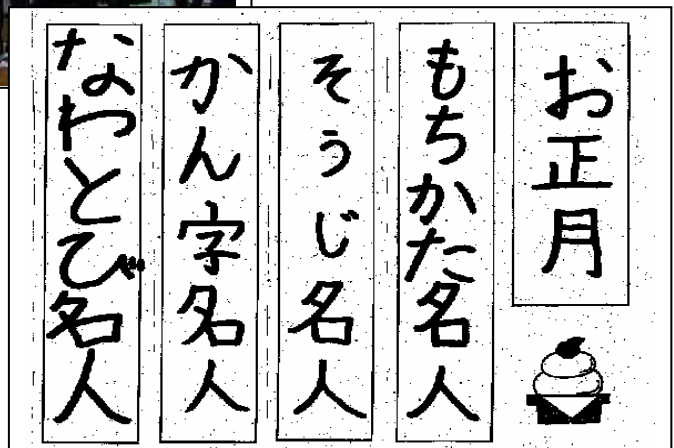 お正月
もちかた名人
そうじ名人
かん字名人
なわとび名人